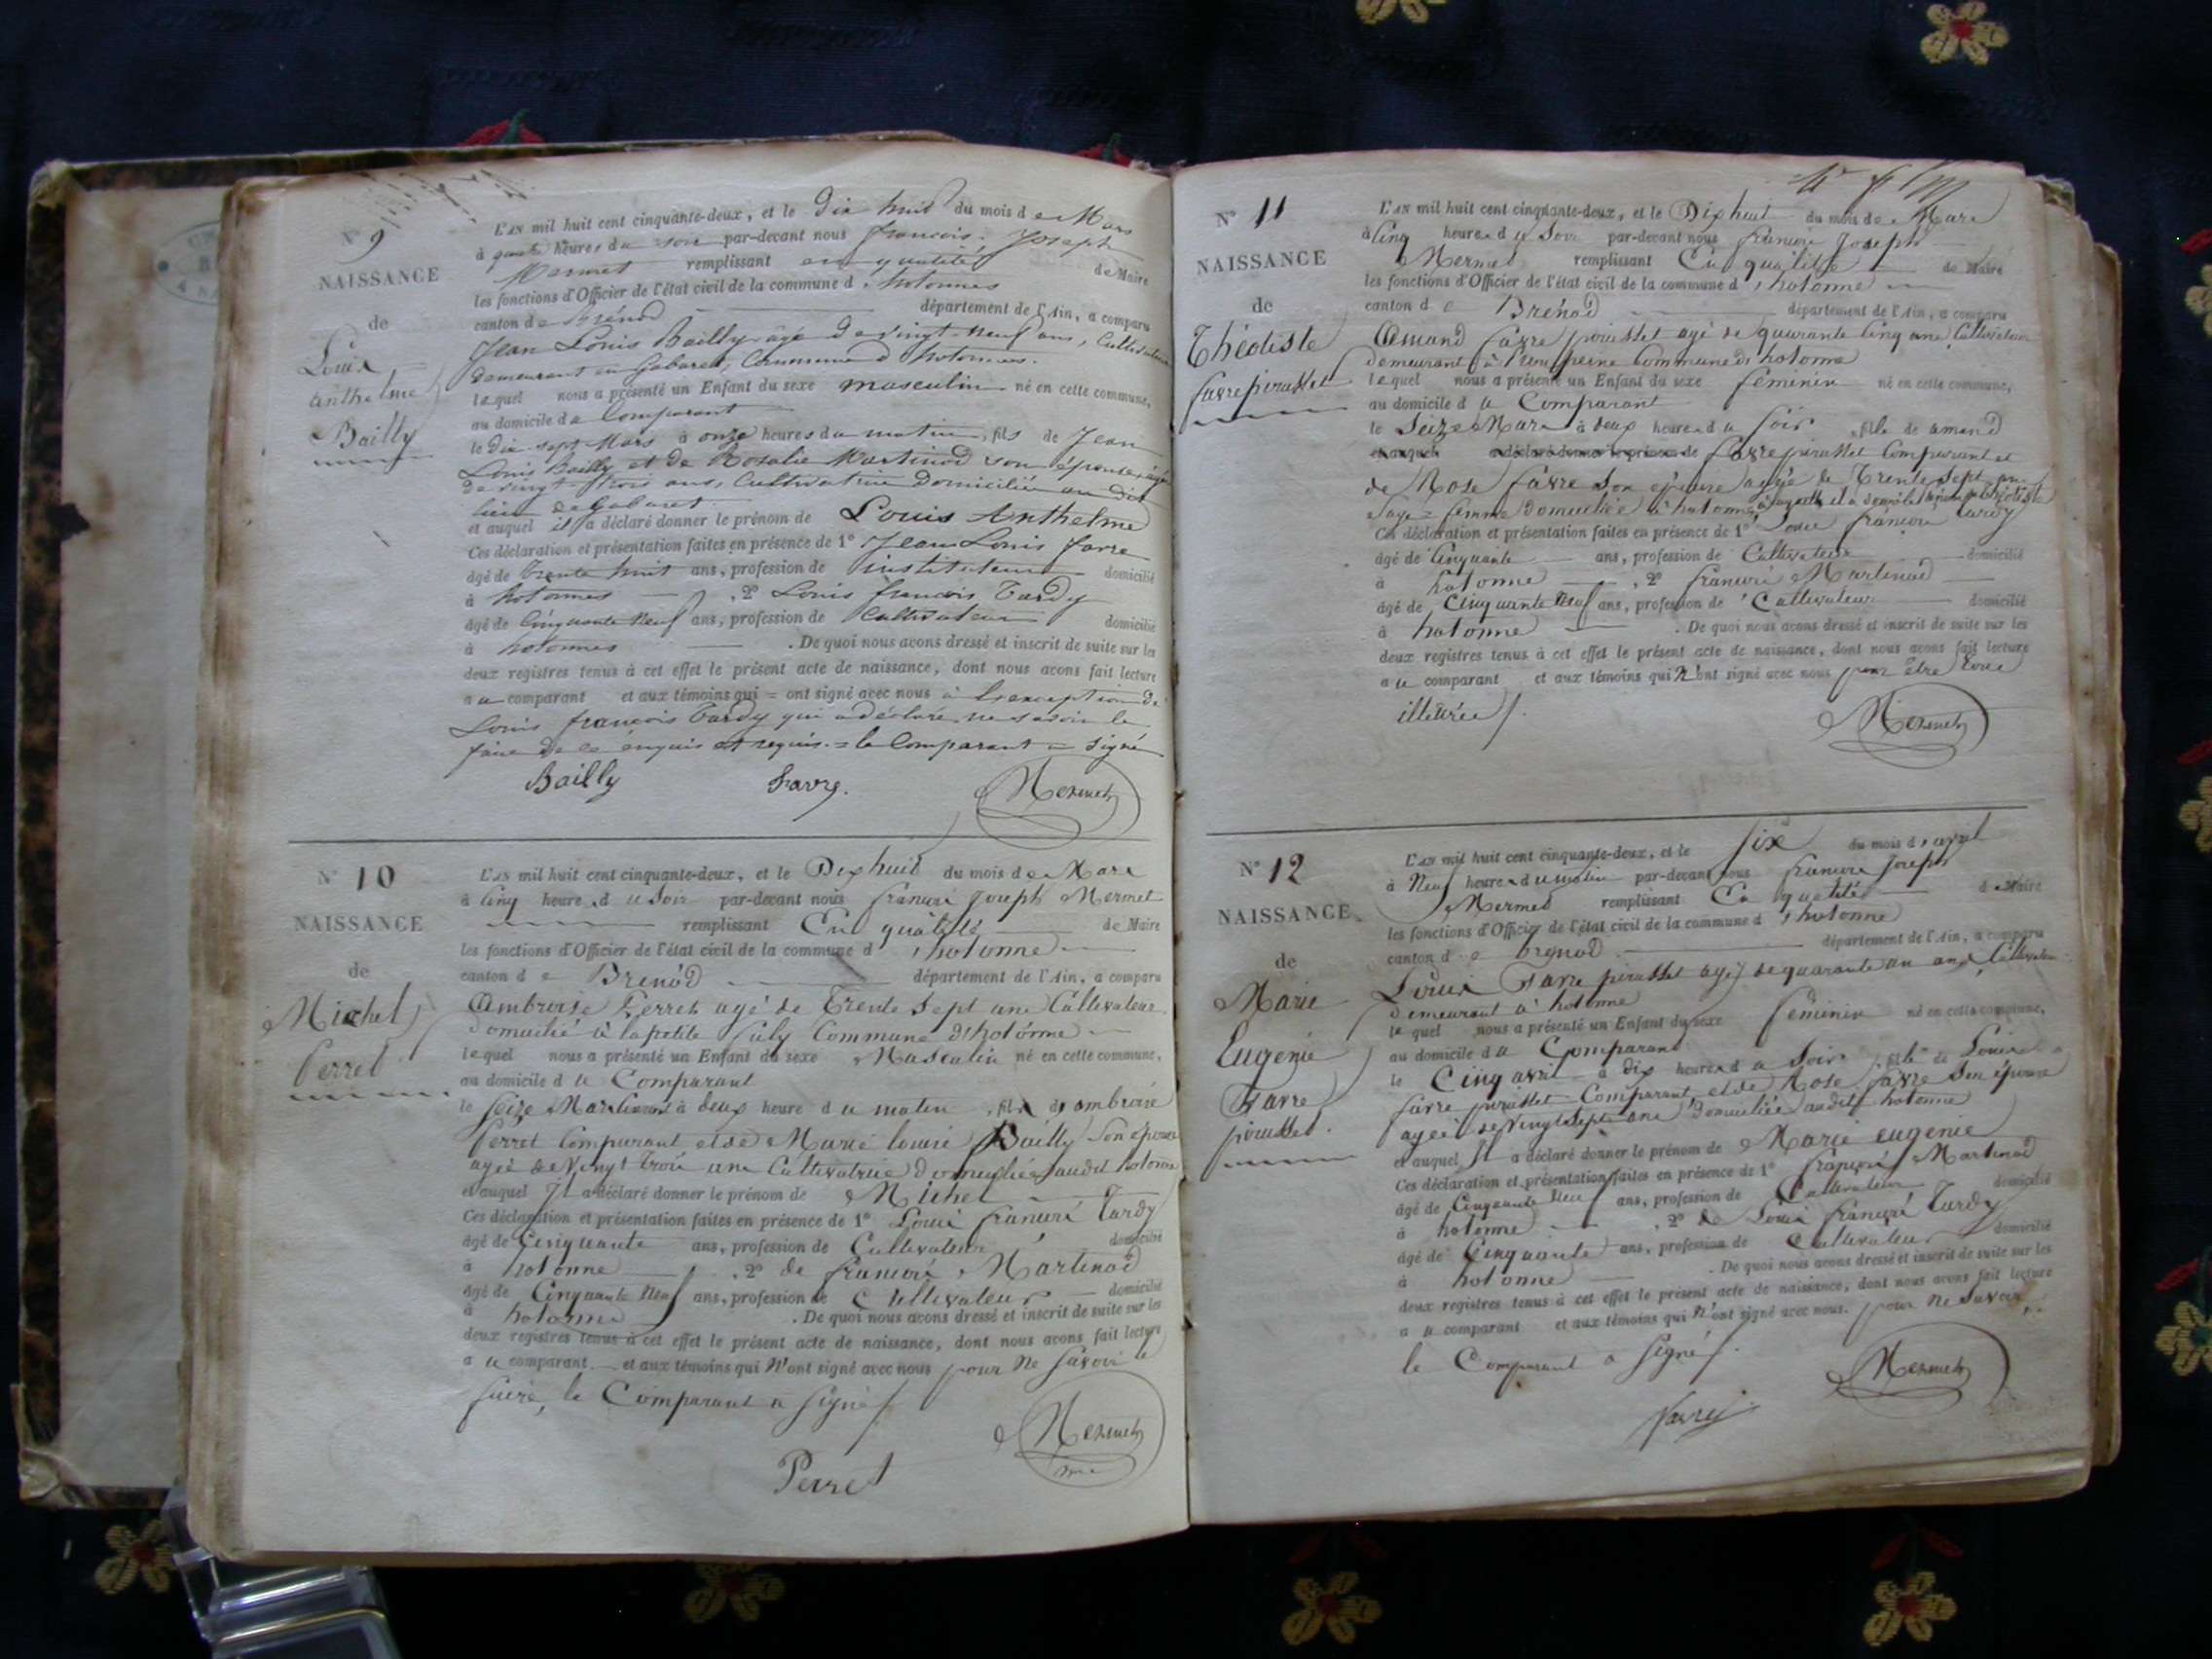 N° 9
NAISSANCE
de
Louis
anthelme
Bailly
L'AN mil huit cent cinquante-deux, et le Dix huit du mois de Mars
à quatre heures du soir par-devant nous francois, Joseph
Mermet remplissant en qualité de Maire
les fonctions d'Officier de l'état civil de la commune d'hotonnes
canton de Brénod département de l'Ain, a comparu
Jean Louis Bailly âgé de vingt neuf ans, Cultivateur
demeurant en Gabaret, Commune d'hotonnes.
lequel nous a présenté un Enfant du sexe masculin né en cette commune,
au domicile du Comparant
le Dix sept Mars à onze heures du matin, fils de Jean
Louis Bailly et de Rosalie Martinod son épouse, âgée
de vingt trois ans, Cultivatrice domiciliée au dit
lieu de Gabaret
et auquel il a déclaré donner le prénom de Louis Anthelme
Ces déclaration et présentation faites en présence de 1° Jean Louis favre
âgé de trente huit ans, profession de instituteur domicilié
à hotonnes , 2° Louis françois Tardy
âgé de Cinquante Neuf ans, profession de Cultivateur domicilié
à hotonnes . De quoi nous avons dressé et inscrit de suite sur les
deux registres tenus à cet effet le présent acte de naissance, dont nous avons fait lecture
au comparant et aux témoins qui = ont signé avec nous à l'exception de
Louis françois Tardy qui a déclaré ne savoir le
faire de ce enquis et requis. = le Comparant = signé
Bailly Favre. Mermet
N° 10
NAISSANCE
de
Michel
Perret
L'AN mil huit cent cinquante-deux, et le Dix huit du mois de Mars
à Cinq heures du Soir par-devant nous francois Joseph Mermet
remplissant En qualité de Maire
les fonctions d'Officier de l'état civil de la commune d'hotonne
canton de Brenód département de l'Ain, a comparu
Ambroise Perret agé de Trente Sept ans Cultivateur
domicilié à la petite Commune d'hotonne
lequel nous a présenté un Enfant du sexe Masculin né en cette commune,
au domicile du Comparant
le Seize Mars à deux heure du matin, fils d'ambroise
Perret Comparant et de Marie louise Bailly Son épouse
agée de Vingt trois ans Cultivatrice domiciliée audit hotonne
et auquel Il a déclaré donner le prénom de Michel
Ces déclaration et présentation faites en présence de 1° Louis francois Tardy
âgé de Cinquante ans, profession de Cultivateur domicilié
à hotonne , 2° de francois Martinod
âgé de Cinquante Neuf ans, profession de Cultivateur domicilié
à hotonne . De quoi nous avons dressé et inscrit de suite sur les
deux registres tenus à cet effet le présent acte de naissance, dont nous avons fait lecture
au comparant et aux témoins qui N'ont signé avec nous pour Ne Savoir le
faire, le Comparant a signé
Perret Mermet
N° 11
NAISSANCE
de
Théotiste
favre pirasset
L'AN mil huit cent cinquante-deux, et le Dix huit du mois de Mars
à Cinq heures du Soir par-devant nous francois Joseph
Mermet remplissant En qualité de Maire
les fonctions d'Officier de l'état civil de la commune d'hotonne
canton de Brénod département de l'Ain, a comparu
Amand favre pirasset agé de quarante Cinq ans Cultivateur
demeurant à Commune d'hotonne
lequel nous a présenté un Enfant du sexe féminin né en cette commune,
au domicile du Comparant
le Seize Mars à deux heures du Soir, fille de amand
et auquel a déclaré donner le prénom de favre pirasset Comparant et
de Rose favre Son épouse agée de Trente Sept ans
Sage = femme domiciliée à hotonne, à laquelle il a donné le prénom Théotiste
Ces déclaration et présentation faites en présence de 1° Louis francois Tardy
âgé de Cinquante ans, profession de Cultivateur domicilié
à hotonne , 2° francois Martinod
âgé de Cinquante Neuf ans, profession de Cultivateur domicilié
à hotonne . De quoi nous avons dressé et inscrit de suite sur les
deux registres tenus à cet effet le présent acte de naissance, dont nous avons fait lecture
au comparant et aux témoins qui N'ont signé avec nous pour être tous
illétrés
Mermet
N° 12
NAISSANCE
de
Marie
Eugenie
Favre
pirasset.
L'AN mil huit cent cinquante-deux, et le Six du mois d'avril
à Neuf heures du matin par-devant nous francois Joseph
Mermet remplissant En qualité de Maire
les fonctions d'Officier de l'état civil de la commune d'hotonne
canton de brenod département de l'Ain, a comparu
Louis Favre pirasset agé de quarante un ans, Cultivateur
demeurant à hotonne
lequel nous a présenté un Enfant du sexe féminin né en cette commune,
au domicile du Comparant
le Cinq avril à dix heures du Soir, fille de Louis
favre pirasset Comparant, et de Rose favre Son épouse
agée de Vingt Sept ans domiciliée audit hotonne
et auquel Il a déclaré donner le prénom de Marie eugenie
Ces déclaration et présentation faites en présence de 1° francois Martinod
âgé de Cinquante Neuf ans, profession de Cultivateur domicilié
à hotonne , 2° de Louis francois Tardy
âgé de Cinquante ans, profession de Cultivateur domicilié
à hotonne . De quoi nous avons dressé et inscrit de suite sur les
deux registres tenus à cet effet le présent acte de naissance, dont nous avons fait lecture
au comparant et aux témoins qui N'ont signé avec nous. pour Ne Savoir,
le Comparant a signé
Favre Mermet